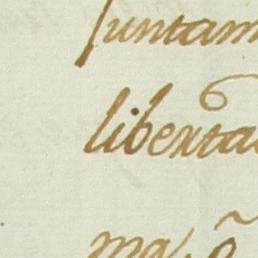 juntam
liberta
ma, õ